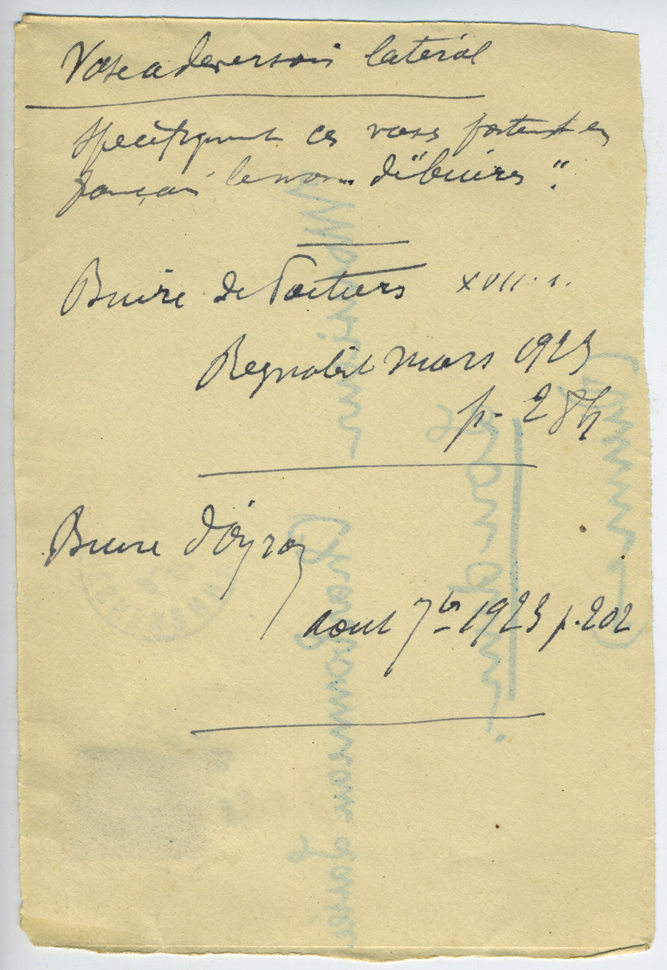 Vase a deversoir latéral
Spécifiquement ces vases portent en
français le nom d'"buires".
Buire de Poitiers XVII. s.
mars 1923
p. 284
Buire d'Oyron
aout 7bre 1923 p. 202